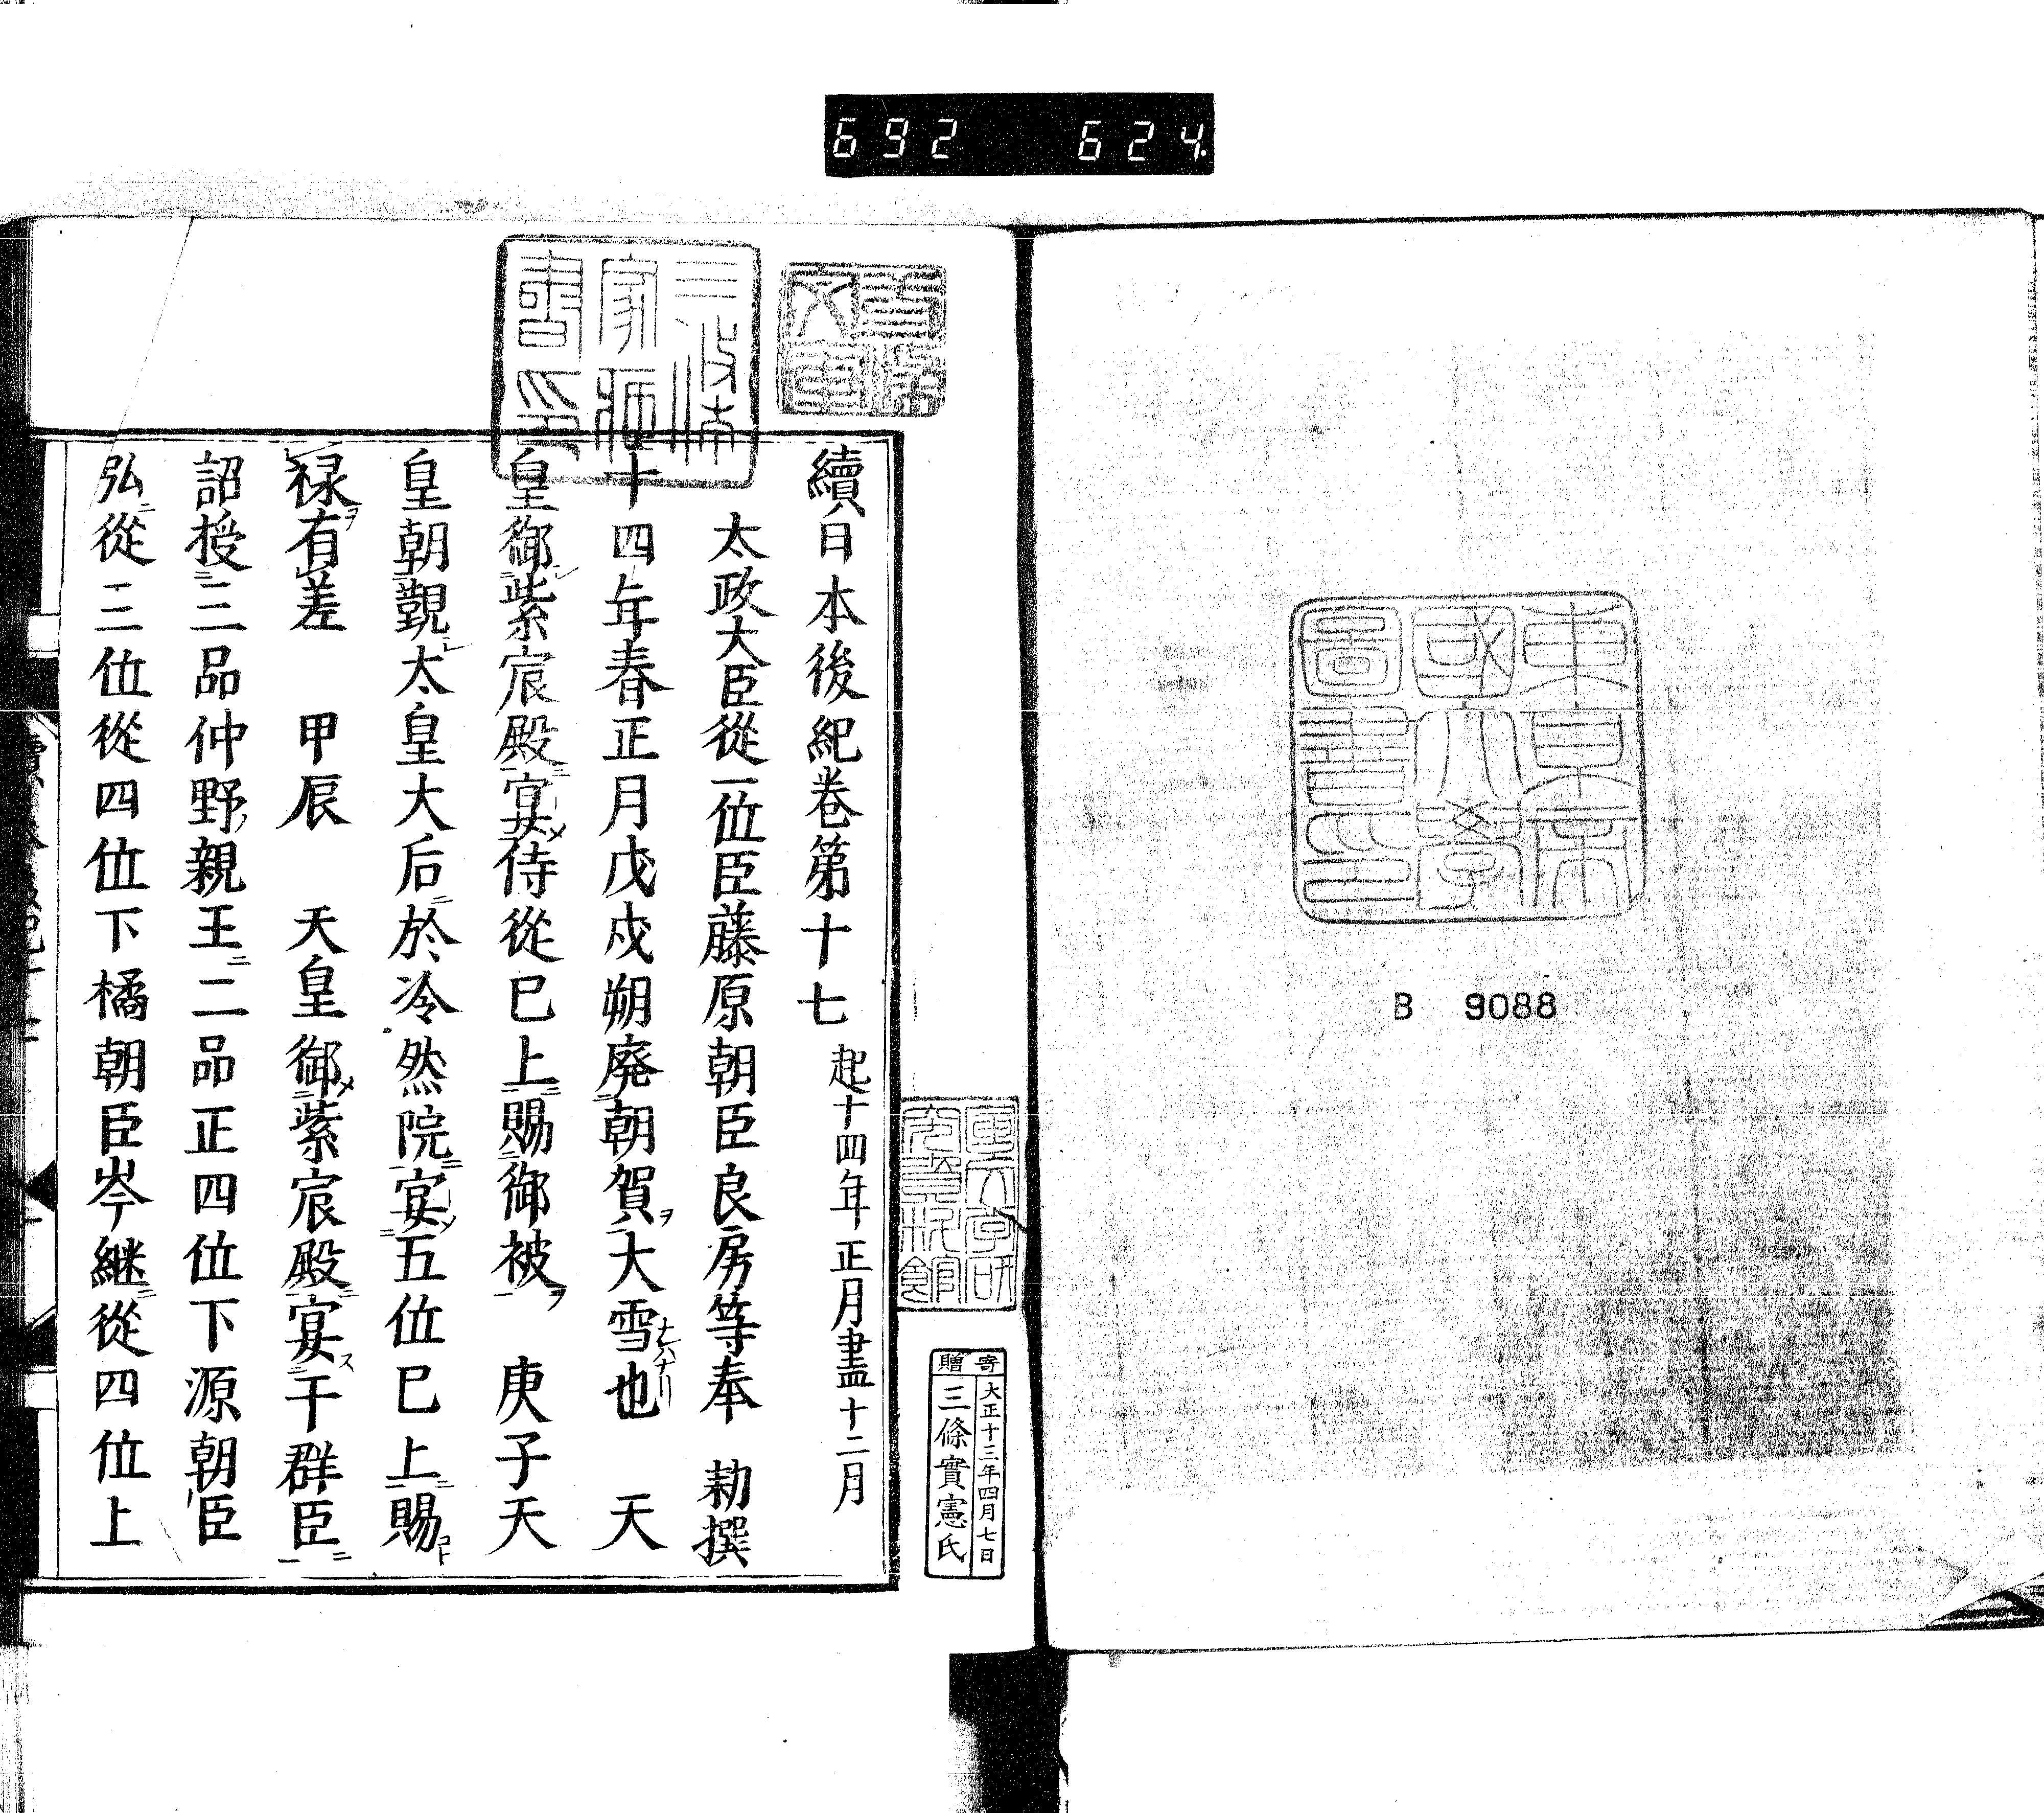 692 624.
東京帝
國大學
圖書印
B 9088
寄贈
大正十三年四月七日
三條實憲氏
三條
家藏
書印
續日本後紀卷第十七 起十四年正月盡十二月
太政大臣從一位臣藤原朝臣良房等奉 勅撰
十四年春正月戊戌朔廃朝賀ヲ大雪也 天
皇御紫宸殿宴侍從已上賜御被ヲ 庚子天
皇朝覲太皇大后於冷然院宴五位已上賜
禄ヲ有差 甲辰 天皇御紫宸殿宴ス于群臣
詔授三品仲野親王二品正四位下源朝臣
弘從三位從四位下橘朝臣岑継從四位上